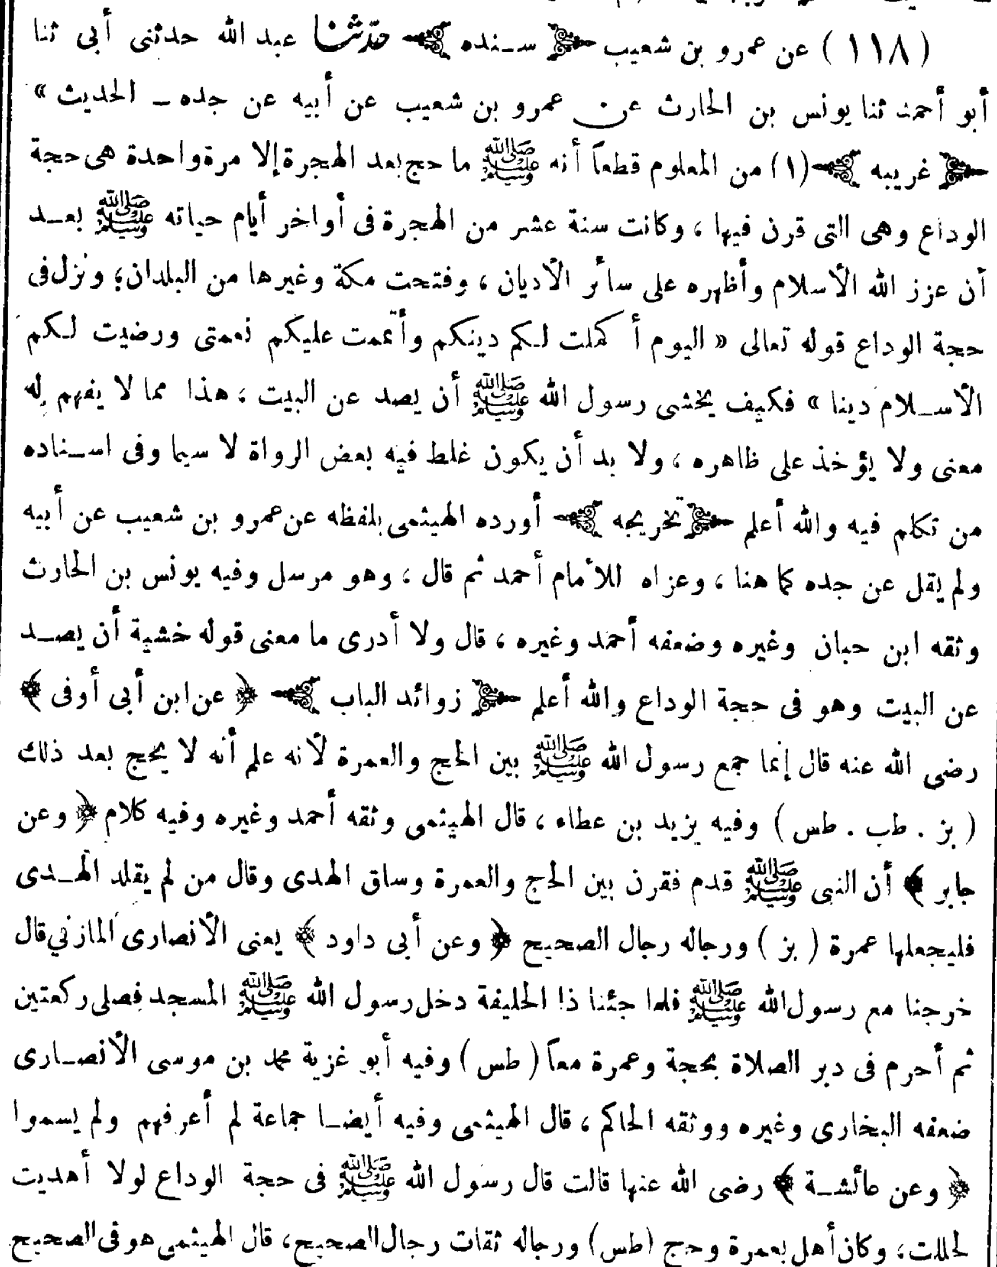 (١١٨) عن عمرو بن شعيب سـنده حدّثنا عبد الله حدثنى أبى ثنا
أبو أحمد ثنا يونس بن الحارث عن عمرو بن شعيب عن أبيه عن جده ــ الحديث »
غريبه (١) من المعلوم قطعاً أنه ﷺ ما حج بعد الهجرة إلا مرة واحدة هى حجة
الوداع وهى التى قرن فيها ، وكانت سنة عشر من الهجرة فى أواخر أيام حياته ﷺ بعـد
أن عزز الله الأسلام وأظهره على سائر الأديان ، وفتحت مكة وغيرها من البلدان؛ ونزل فى
حجة الوداع قوله تعالى « اليوم أكملت لـكم دينكم وأتممت عليكم نعمتى ورضيت لـكم
الأسـلام دينا » فكيف يخشى رسول الله ﷺ أن يصد عن البيت ، هذا مما لا يفهم له
معنى ولا يؤخذ على ظاهره ، ولا بد أن يكون غلط فيه بعض الرواة لا سيما وفى اسـناده
من تكلم فيه والله أعلم تخريجه أورده الهيثمى بلفظه عن عمرو بن شعيب عن أبيه
ولم يقل عن جده كما هنا ، وعزاه للأمام أحمد ثم قال ، وهو مرسل وفيه يونس بن الحارث
وثقه ابن حبان وغيره وضعفه أحمد وغيره ، قال ولا أدرى ما معنى قوله خشية أن يصـد
عن البيت وهو فى حجة الوداع والله أعلم زوائد الباب ﴿ عن ابن أبى أوفى ﴾
رضى الله عنه قال إنما جمع رسول الله ﷺ بين الحج والعمرة لأنه علم أنه لا يحج بعد ذلك
( بز . طب . طس ) وفيه يزيد بن عطاء ، قال الهيثمى وثقه أحمد وغيره وفيه كلام ﴿ وعن
جابر ﴾ أن النبى ﷺ قدم فقرن بين الحج والعمرة وساق الهدى وقال من لم يقلد الهـدى
فليجعلها عمرة ( بز ) ورجاله رجال الصحيح ﴿ وعن أبى داود ﴾ يعنى الأنصارى المازني قال
خرجنا مع رسول الله ﷺ فلما جئنا ذا الحليفة دخل رسول الله ﷺ المسجد فصلى ركعتين
ثم أحرم فى دبر الصلاة بحجة وعمرة معاً ( طس ) وفيه أبو غزية محمد بن موسى الأنصـارى
ضعفه البخارى وغيره ووثقه الحاكم ، قال الهيثمى وفيه أيضـا جماعة لم أعرفهم ولم يسموا
﴿ وعن عائشـة ﴾ رضى الله عنها قالت قال رسول الله ﷺ فى حجة الوداع لولا أهديت
لحللت، وكان أهل بعمرة وحج (طس) ورجاله ثقات رجال الصحيح، قال الهيثمى هو فى الصحيح